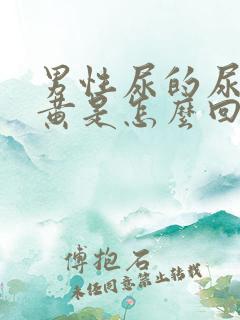 男性尿的尿
黄是怎麼回
傅抱石
未经同意禁止转载